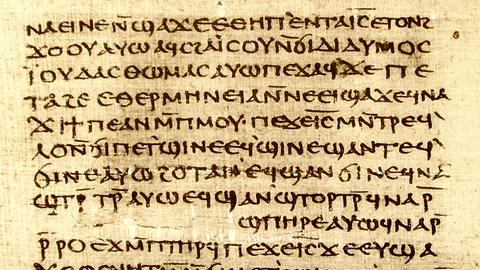 ⲛⲁⲉⲓⲛⲉⲛ̄ϣⲁϫⲉⲉⲑⲏⲡⲉⲛⲧⲁⲓ̅ⲥ̅ⲉⲧⲟⲛϩ
ϫⲟⲟⲩⲁⲩⲱⲁϥⲥϩⲁⲓ̈ⲥⲟⲩⲛ̄ϭⲓⲇⲓⲇⲩⲙⲟⲥ
ⲓ̈ⲟⲩⲇⲁⲥⲑⲱⲙⲁⲥⲁⲩⲱⲡⲉϫⲁϥϫⲉⲡⲉ
ⲧⲁϩⲉⲉⲑⲉⲣⲙⲏⲛⲉⲓⲁⲛ̄ⲛⲉⲉⲓϣⲁϫⲉϥⲛⲁ
ϫⲓϯⲡⲉⲁⲛⲙ̄ⲡⲙⲟⲩ·ⲡⲉϫⲉⲓ̅ⲥ̅ⲙⲛ̄ⲧⲣⲉϥ
ⲗⲟⲛ̄ϭⲓⲡⲉⲧϣⲓⲛⲉⲉϥϣⲓⲛⲉϣⲁⲛⲧⲉϥ
ϭⲓⲛⲉⲁⲩⲱϩⲟⲧⲁⲛⲉϥϣⲁⲛϭⲓⲛⲉϥⲛⲁ
ϣⲧⲣ̄ⲧⲣ̄ⲁⲩⲱⲉϥϣⲁⲛϣⲧⲟⲣⲧⲣ̄ϥⲛⲁⲣ̄
ϣⲡⲏⲣⲉⲁⲩⲱϥⲛⲁⲣ̄
ⲣ̄ⲣⲟⲉϫⲙ̄ⲡⲧⲏⲣϥⲡⲉϫⲉⲓ̅ⲥ̅ϫⲉⲉⲩϣⲁ